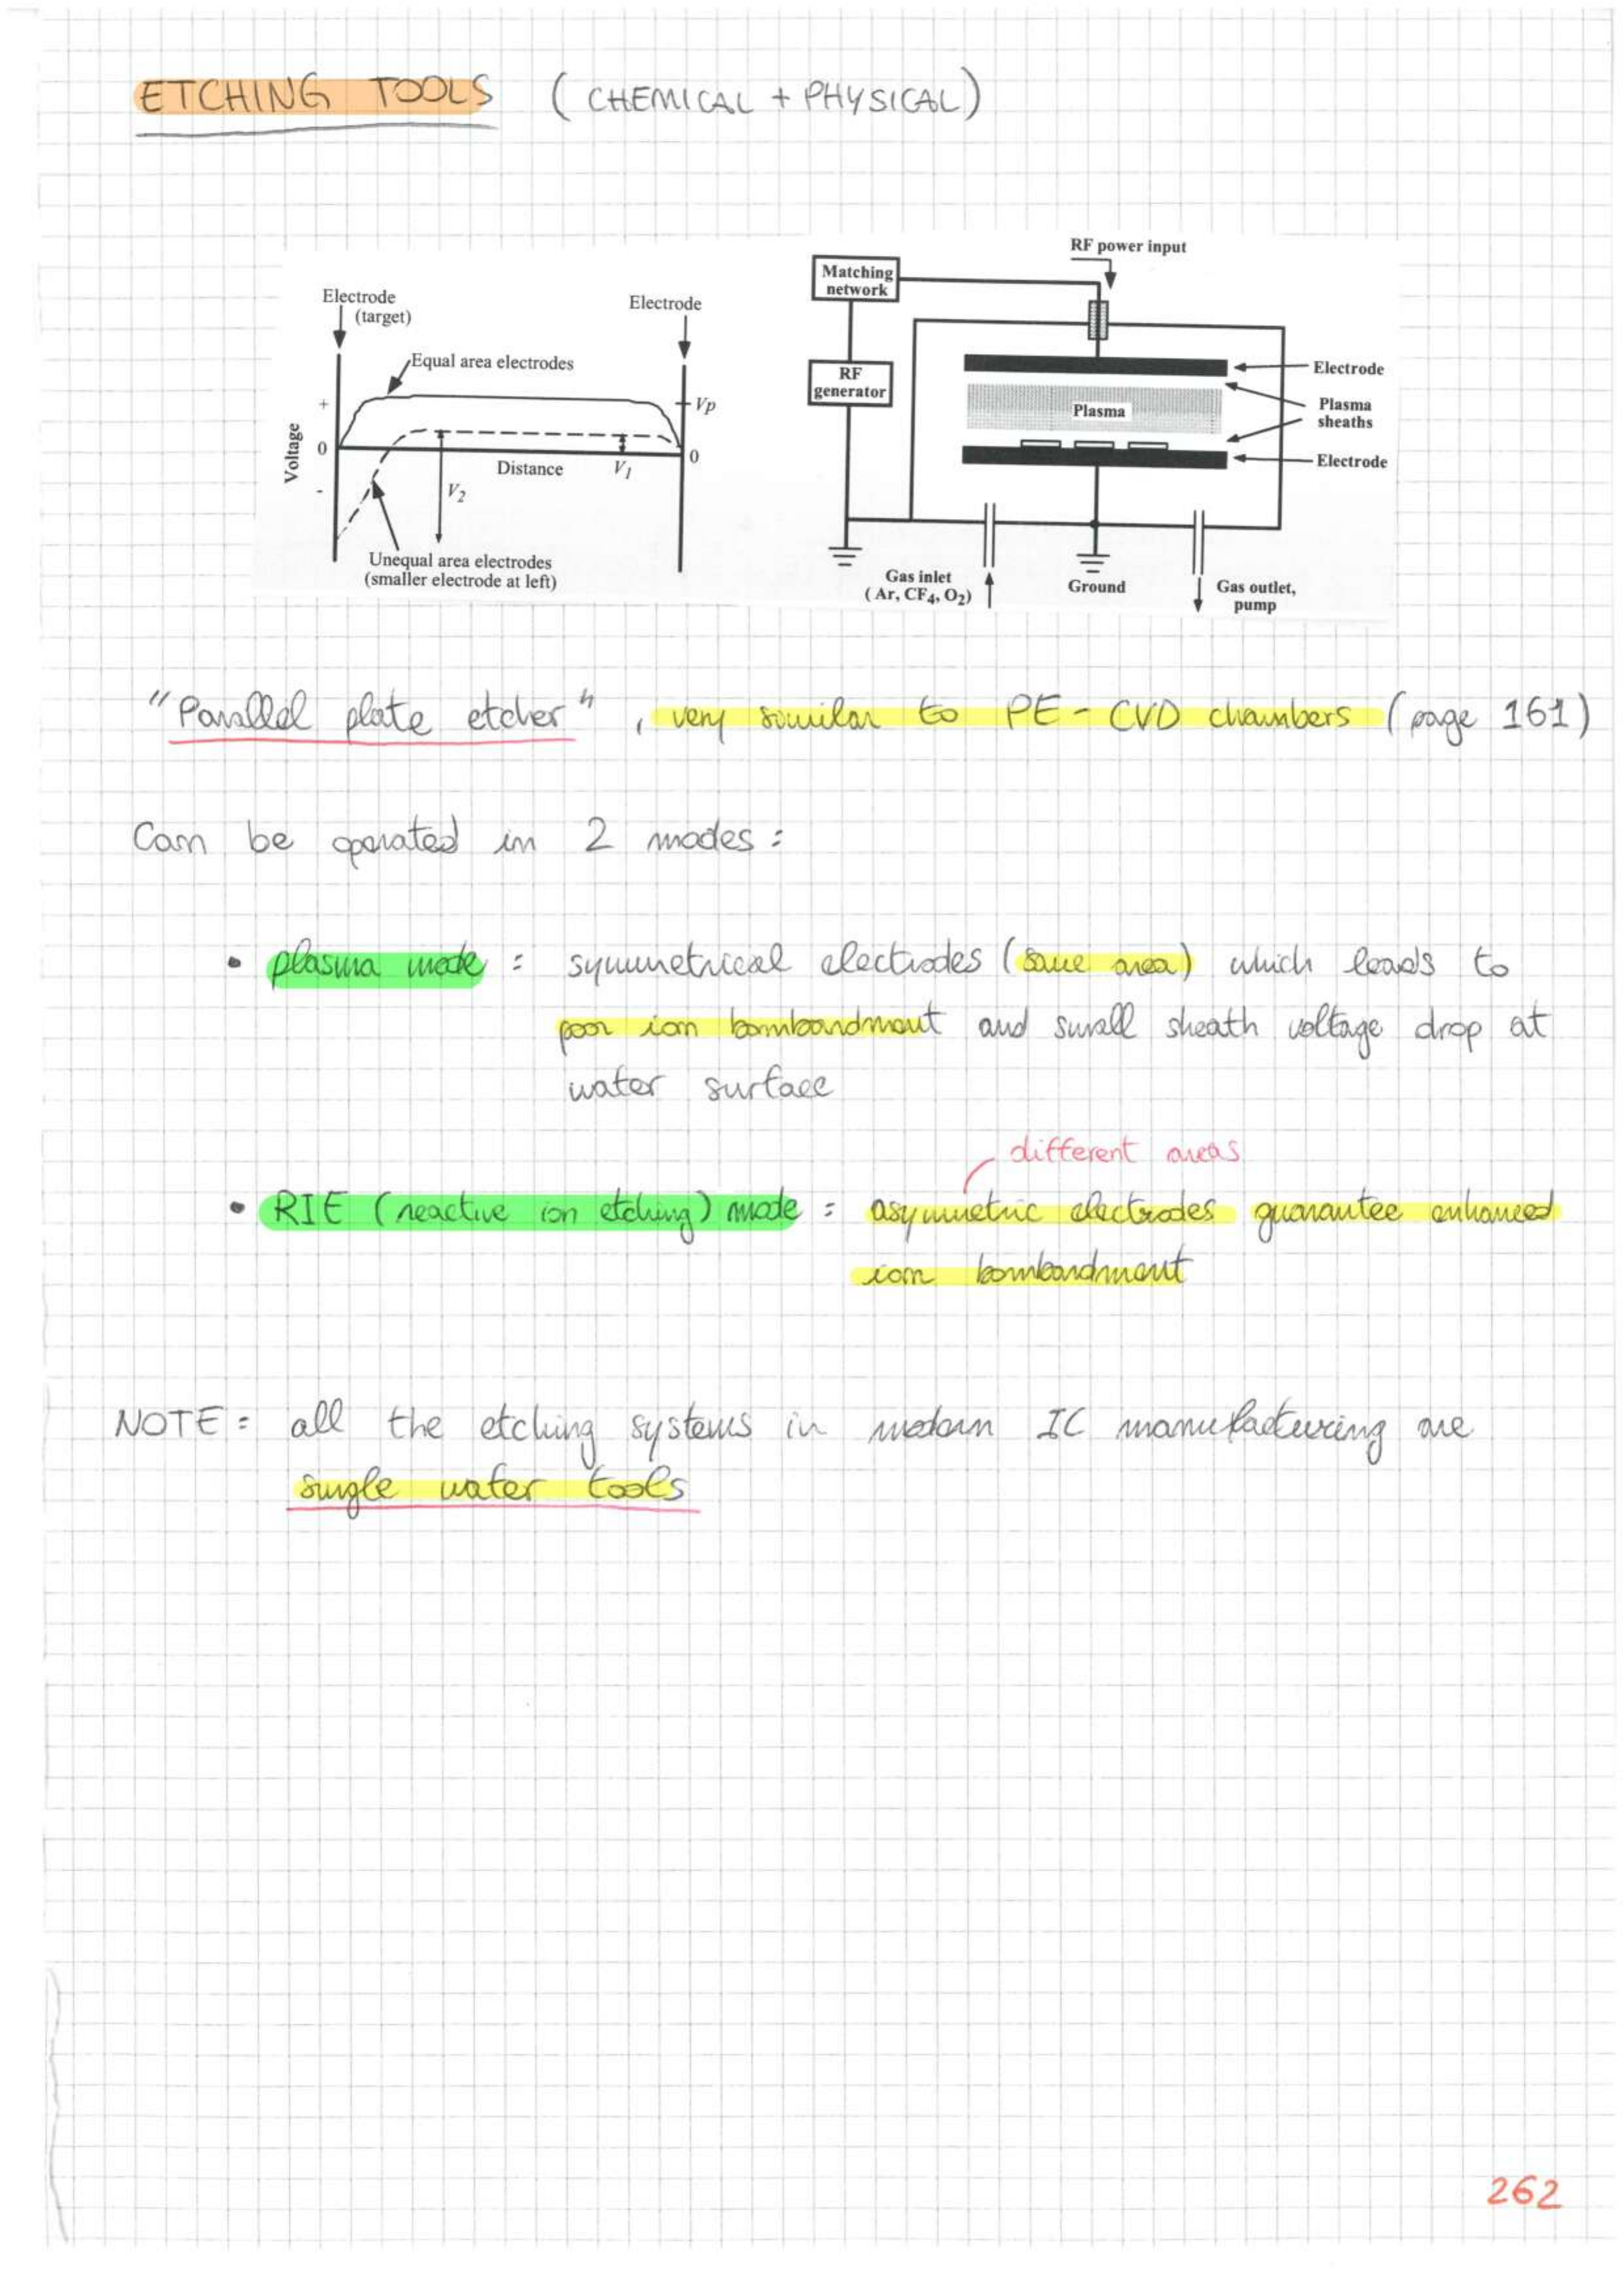 ETCHING TOOLS (CHEMICAL + PHYSICAL)
Electrode
(target)
Electrode
Equal area electrodes
+
Vp
Voltage
0
0
Distance
V1
-
V2
Unequal area electrodes
(smaller electrode at left)
RF power input
Matching
network
RF
generator
Electrode
Plasma
Plasma
sheaths
Electrode
Gas inlet
(Ar, CF4, O2)
Ground
Gas outlet,
pump
"Parallel plate etcher", very similar to PE-CVD chambers (page 161)
Can be operated in 2 modes:
• plasma mode: symmetrical electrodes (same area) which leads to
poor ion bombardment and small sheath voltage drop at
wafer surface
different areas
• RIE (reactive ion etching) mode: asymmetric electrodes guarantee enhanced
ion bombardment
NOTE: all the etching systems in modern IC manufacturing are
single wafer tools
262